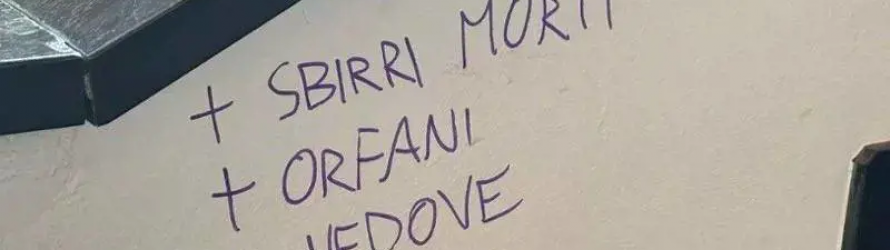 + SBIRRI MORTI
+ ORFANI
VEDOVE